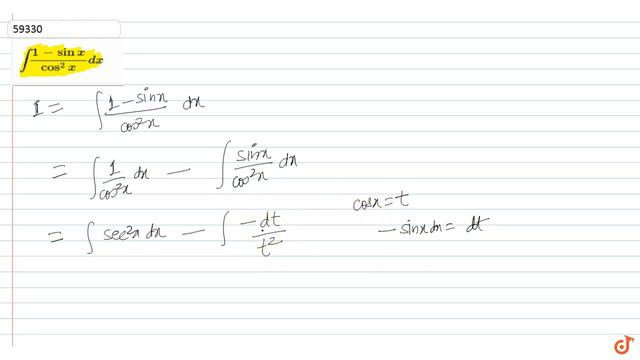 59330
∫ (1 − sin x)/(cos² x) dx
I = ∫ (1 − sinx)/(cos²x) dx
= ∫ 1/(cos²x) dx − ∫ sinx/(cos²x) dx
cosx = t
= ∫ sec²x dx − ∫ −dt/t²
− sinx dx = dt